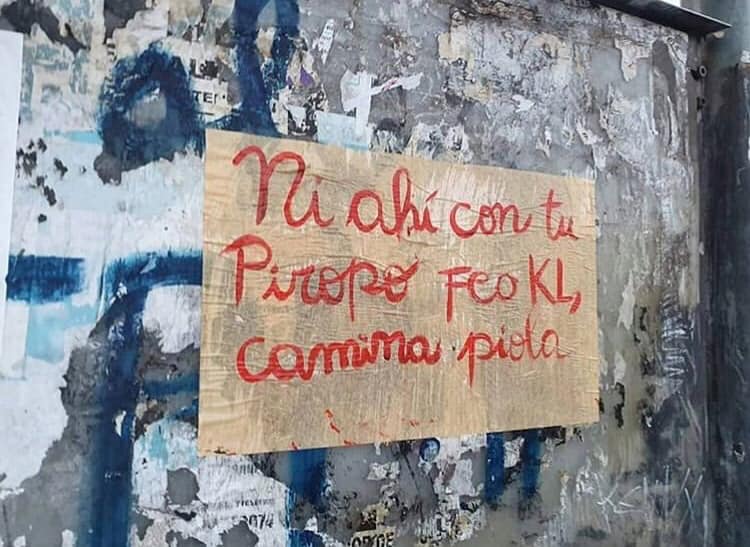 Ni ahí con tu
Piropo FCO KL,
camina piola